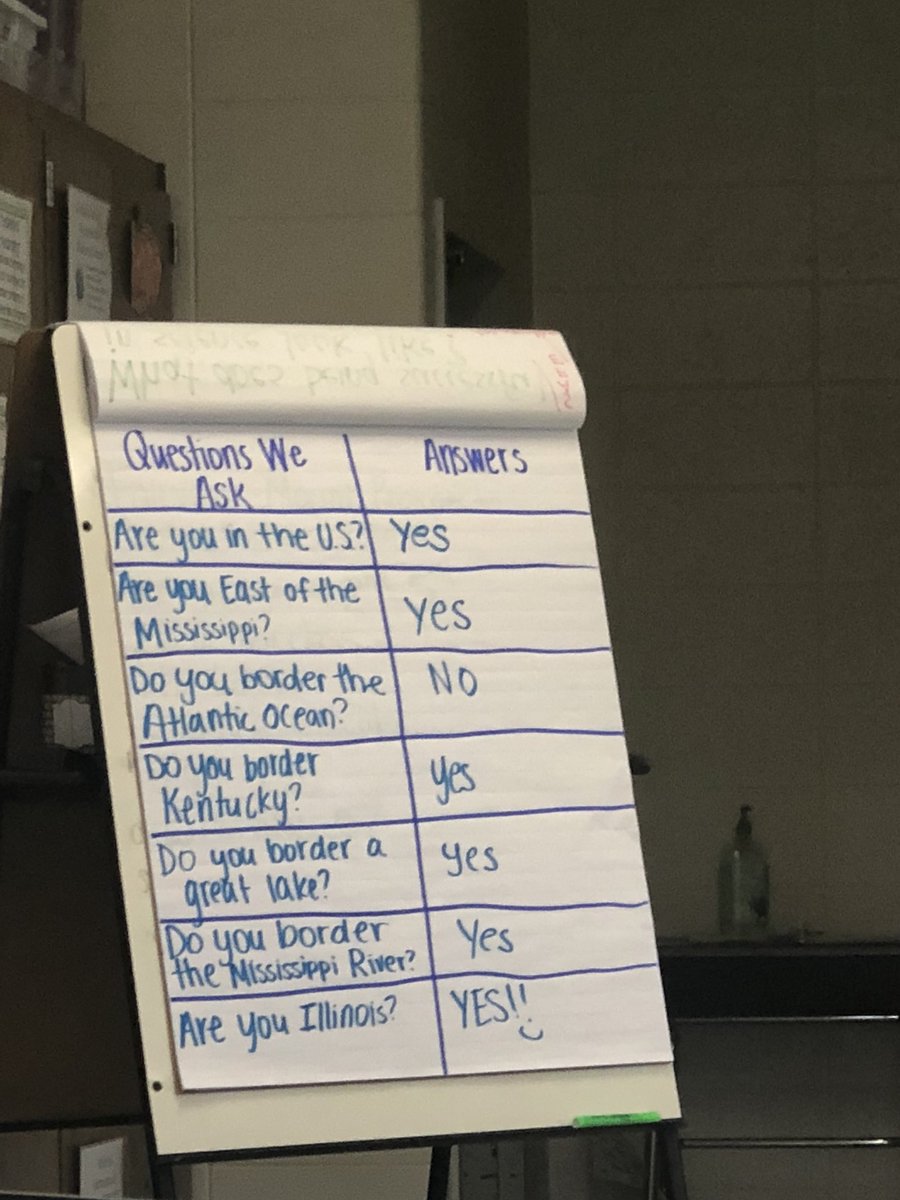 in science look like?
What does being successful
Questions We Ask
Answers
Are you in the U.S.?
Yes
Are you East of the
Mississippi?
Yes
Do you border the
Atlantic Ocean?
NO
Do you border
Kentucky?
yes
Do you border a
great lake?
yes
Do you border
the Mississippi River?
Yes
Are you Illinois?
YES!!